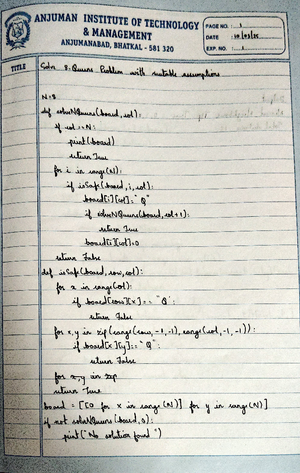 ANJUMAN INSTITUTE OF TECHNOLOGY
& MANAGEMENT
ANJUMANABAD, BHATKAL - 581 320
PAGE NO. : 1
DATE :
EXP. NO. : 1
TITLE
Solve 8-Queens Problem with suitable assumptions
N=8
def solveNQueens(board, col):
if col == N:
print(board)
return True
for i in range(N):
if isSafe(board, i, col):
board[i][col] = "Q"
if solveNQueens(board, col+1):
return True
board[i][col]=0
return False
def isSafe(board, row, col):
for x in range(col):
if board[row][x] == "Q":
return False
for x, y in zip(range(row, -1, -1), range(col, -1, -1)):
if board[x][y] == "Q":
return False
for x, y in zip
return True
board = [[0 for x in range(N)] for y in range(N)]
if not solveNQueens(board, 0):
print("No solution found")